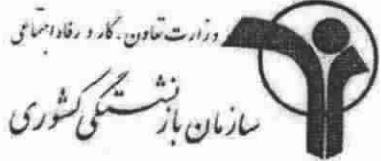 وزارت تعاون، کار و رفاه اجتماعی
سازمان بازنشستگی کشوری